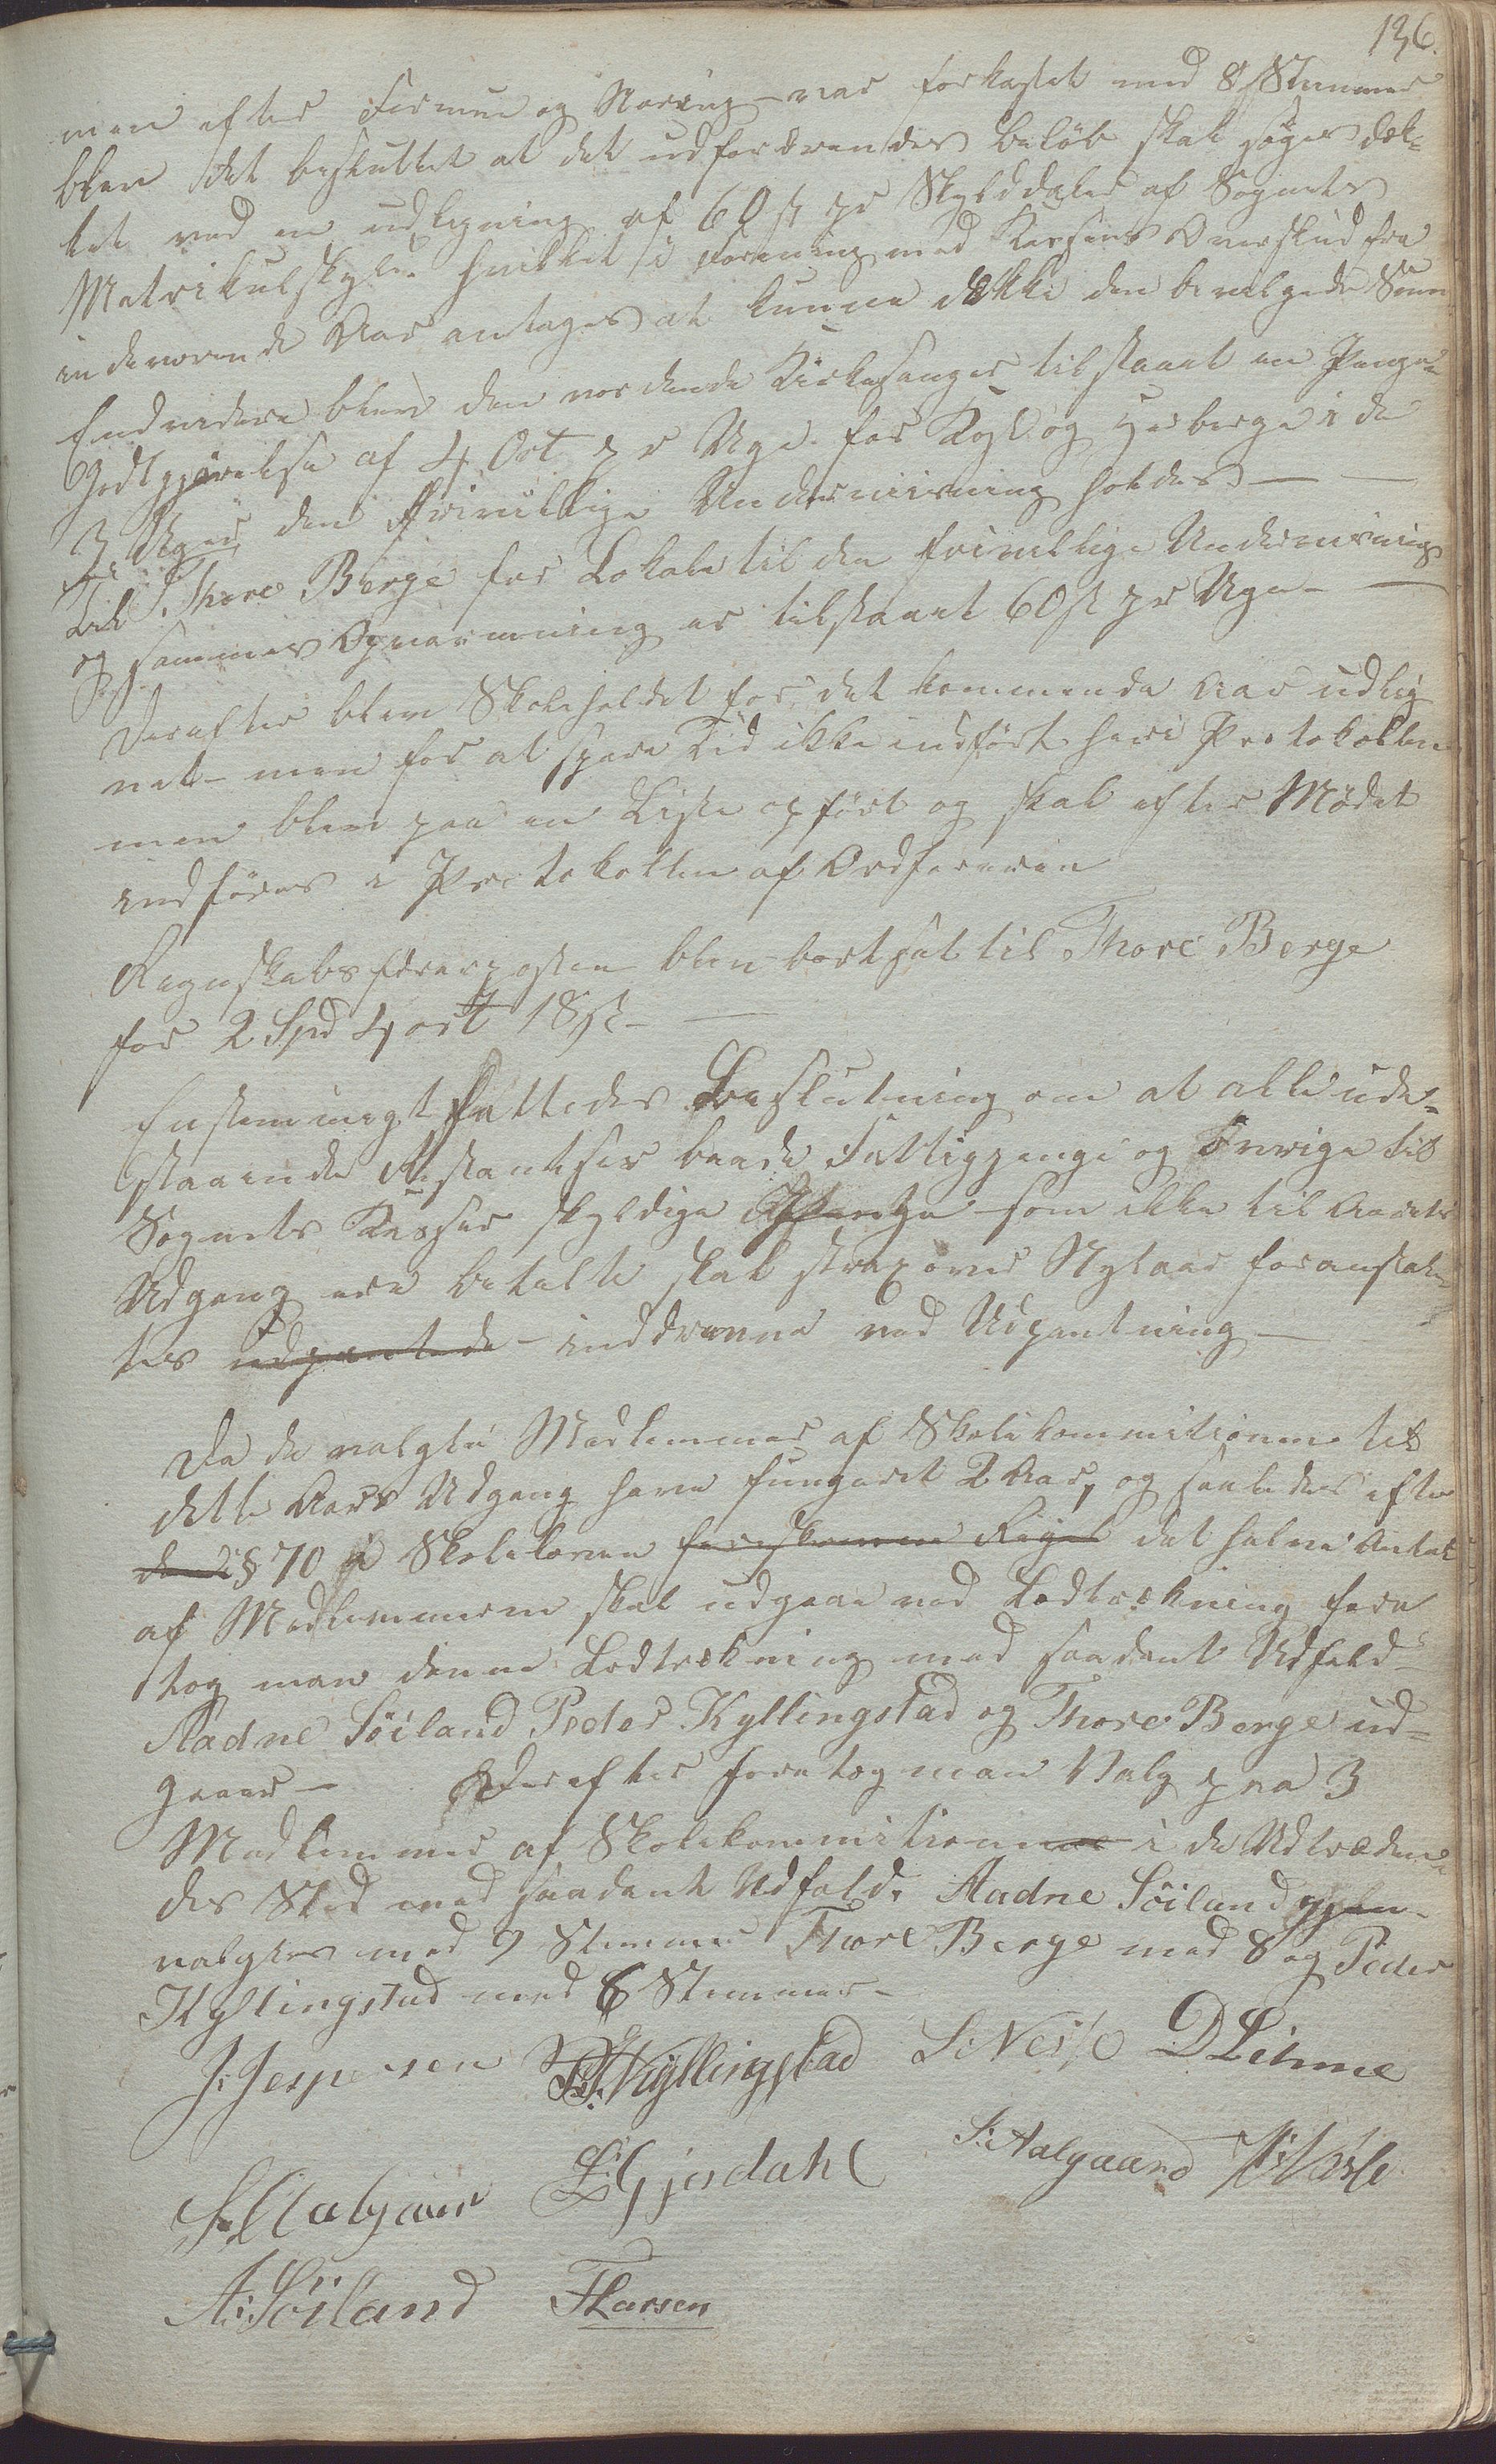 136.
men efter Formue og Næring – var forkastet med 8 Stemmer
blev det besluttet at det udfordrendes beløb skal søges dæk-
ket ved en udligning af 60 ß pr Skylddaler af Sognets
Matrikulskyld hvilket i Forening med Kassens Overskud fra
indeværende Aar antages at kunne dække den bevilgede Sum
Endvidere blev den vordende Kirkesanger tilstaaet en Penge-
Godtgjørelse af 4 Ort pr Uge for Kost og Herberge i de
3 Uger den frivillige Undervisning holdes —
Til Thore Berge for Lokale til den frivillige Undervisning
og sammes Opvarmning er tilstaaet 60 ß pr Uge –
Derefter blev Skoleholdet for det kommende Aar udlig-
net – men for at spare Tid ikke indført heri Protokollen
men blev paa en Liste opført og skal efter Mødet
indføres i Protokollen af Ordføreren
Regnskabsførerposten blev bortsat til Thore Berge
for 2 Spd 4 ort 18 ß –
Enstemmigt fattedes Beslutning om at alle ude-
staaende Restantser baade Fattigpenge og Øvrige til
Sognets Kasser skyldige som ikke til Aarets
Udgang ere betalte skal strax over Nytaar foranstal-
tes udpantede – inddrevne ved Udpantning –
Da de valgte Medlemmer af Skolekommitionen til
dette Aars Udgang have fungeret 2 Aar, og saaledes efter
den i § 70 i Skoleloven foreskrevne Regel det halve Antal
af Medlemmerne skal udgaae ved Lodtrækning fore
tog man denne Lodtrækning med saadant Udfald
Aadne Söiland Peder Kyllingstad og Thore Berge ud-
gaaer – Derefter foretog man Valg paa 3
Medlemmer af Skolekommitionen i de Udtræden-
des Sted med saadant Udfald. Aadne Söiland gjen-
valgtes med 9 Stemmer Thore Berge med 8 og Peder
Kyllingstad med 6 Stemmer –
J. Jespersen P. Kyllingstad S. Nesse D Limme
E Gjesdahl S. Aalgaard
A. Söiland T Larsen